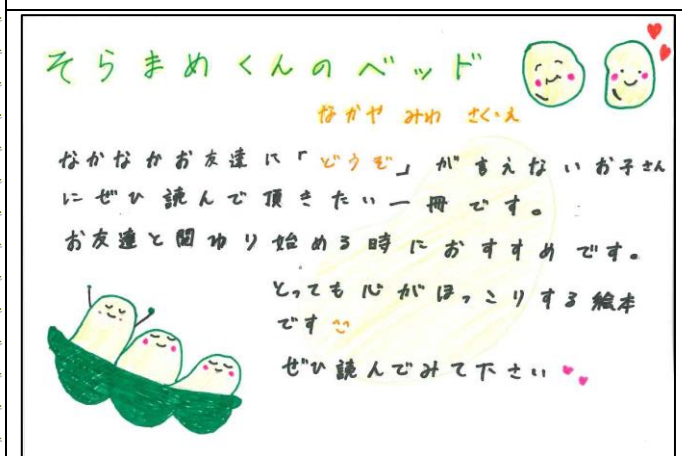 そらまめくんのベッド
なかや みわ さく・え
なかなかお友達に「どうぞ」が言えないお子さん
にぜひ読んで頂きたい一冊です。
お友達と関わり始める時におすすめです。
とっても心がほっこりする絵本
です
ぜひ読んでみて下さい